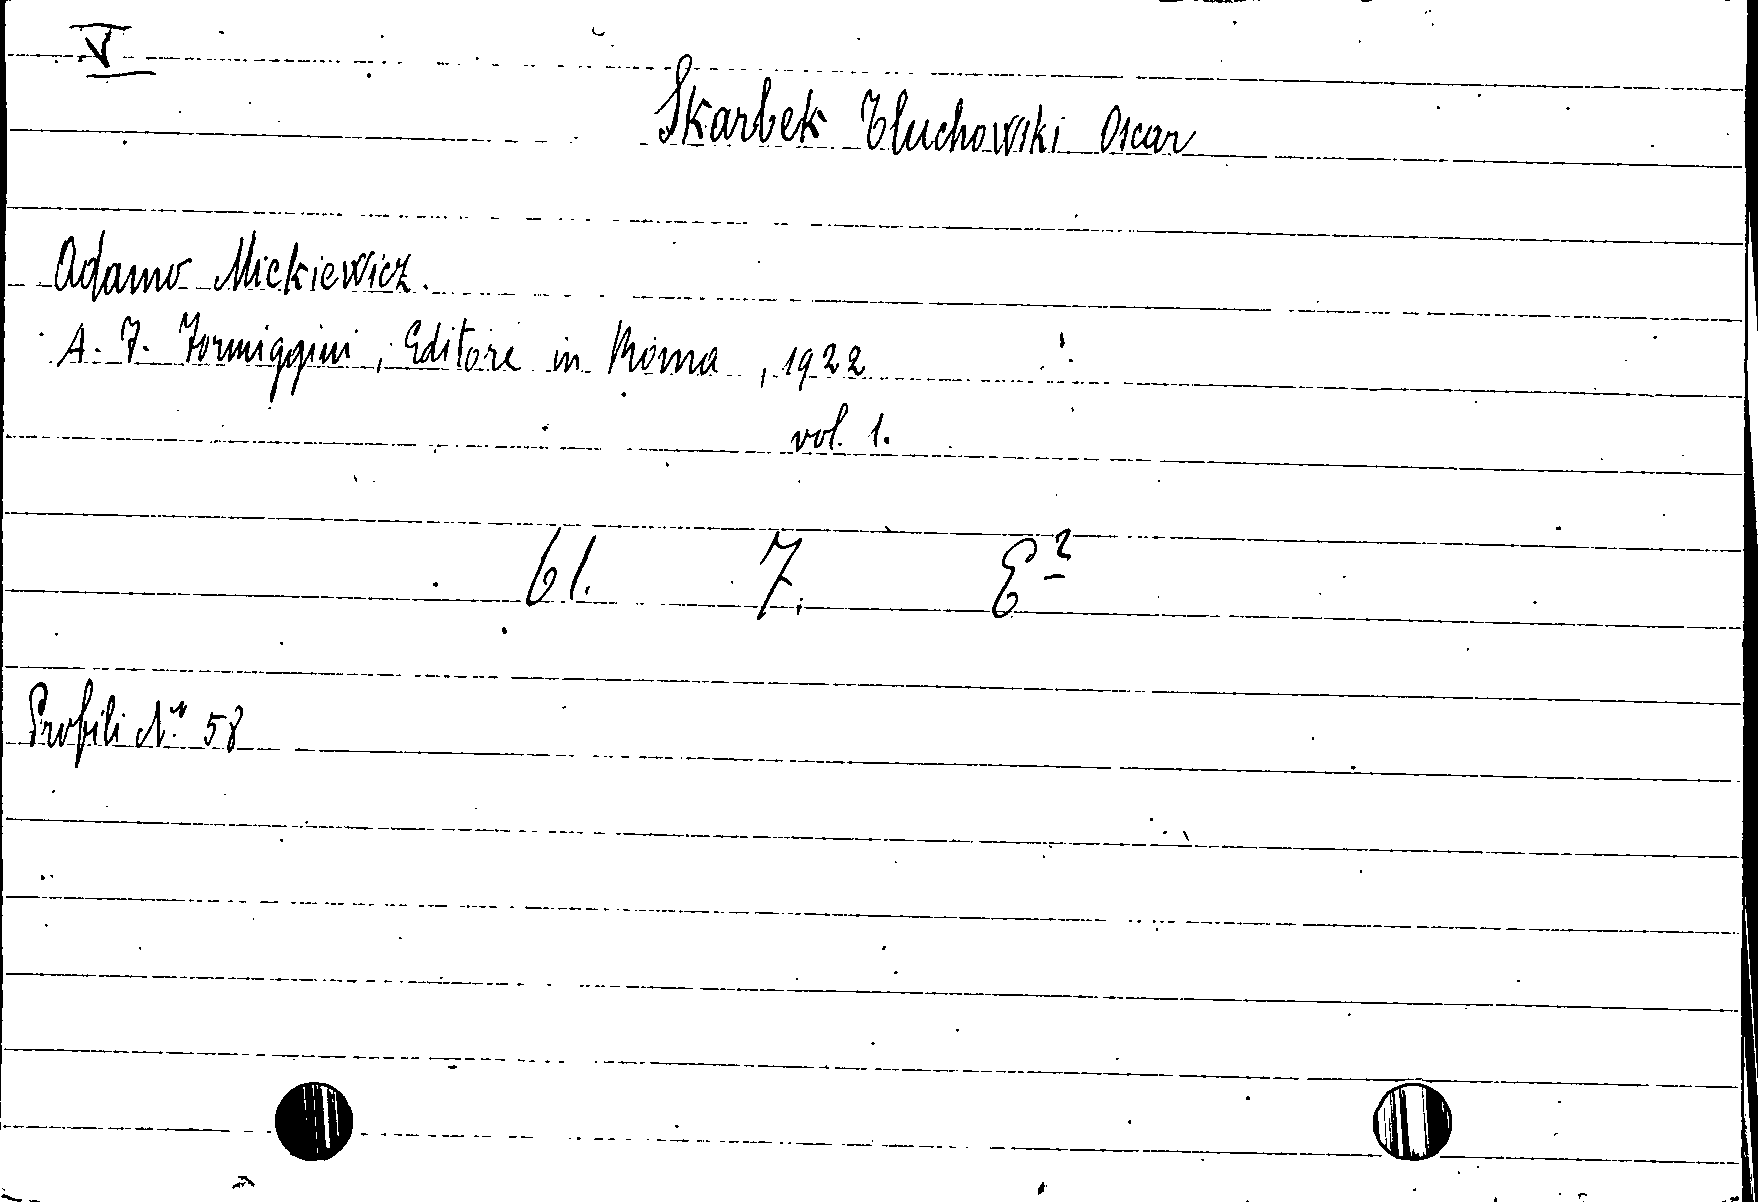 V
Skarbek Tluchowski Oscar
Adamo Mickiewicz.
A. F. Formiggini, Editore in Roma, 1922
vol. 1.
61. 7. E²
Profili N.° 58